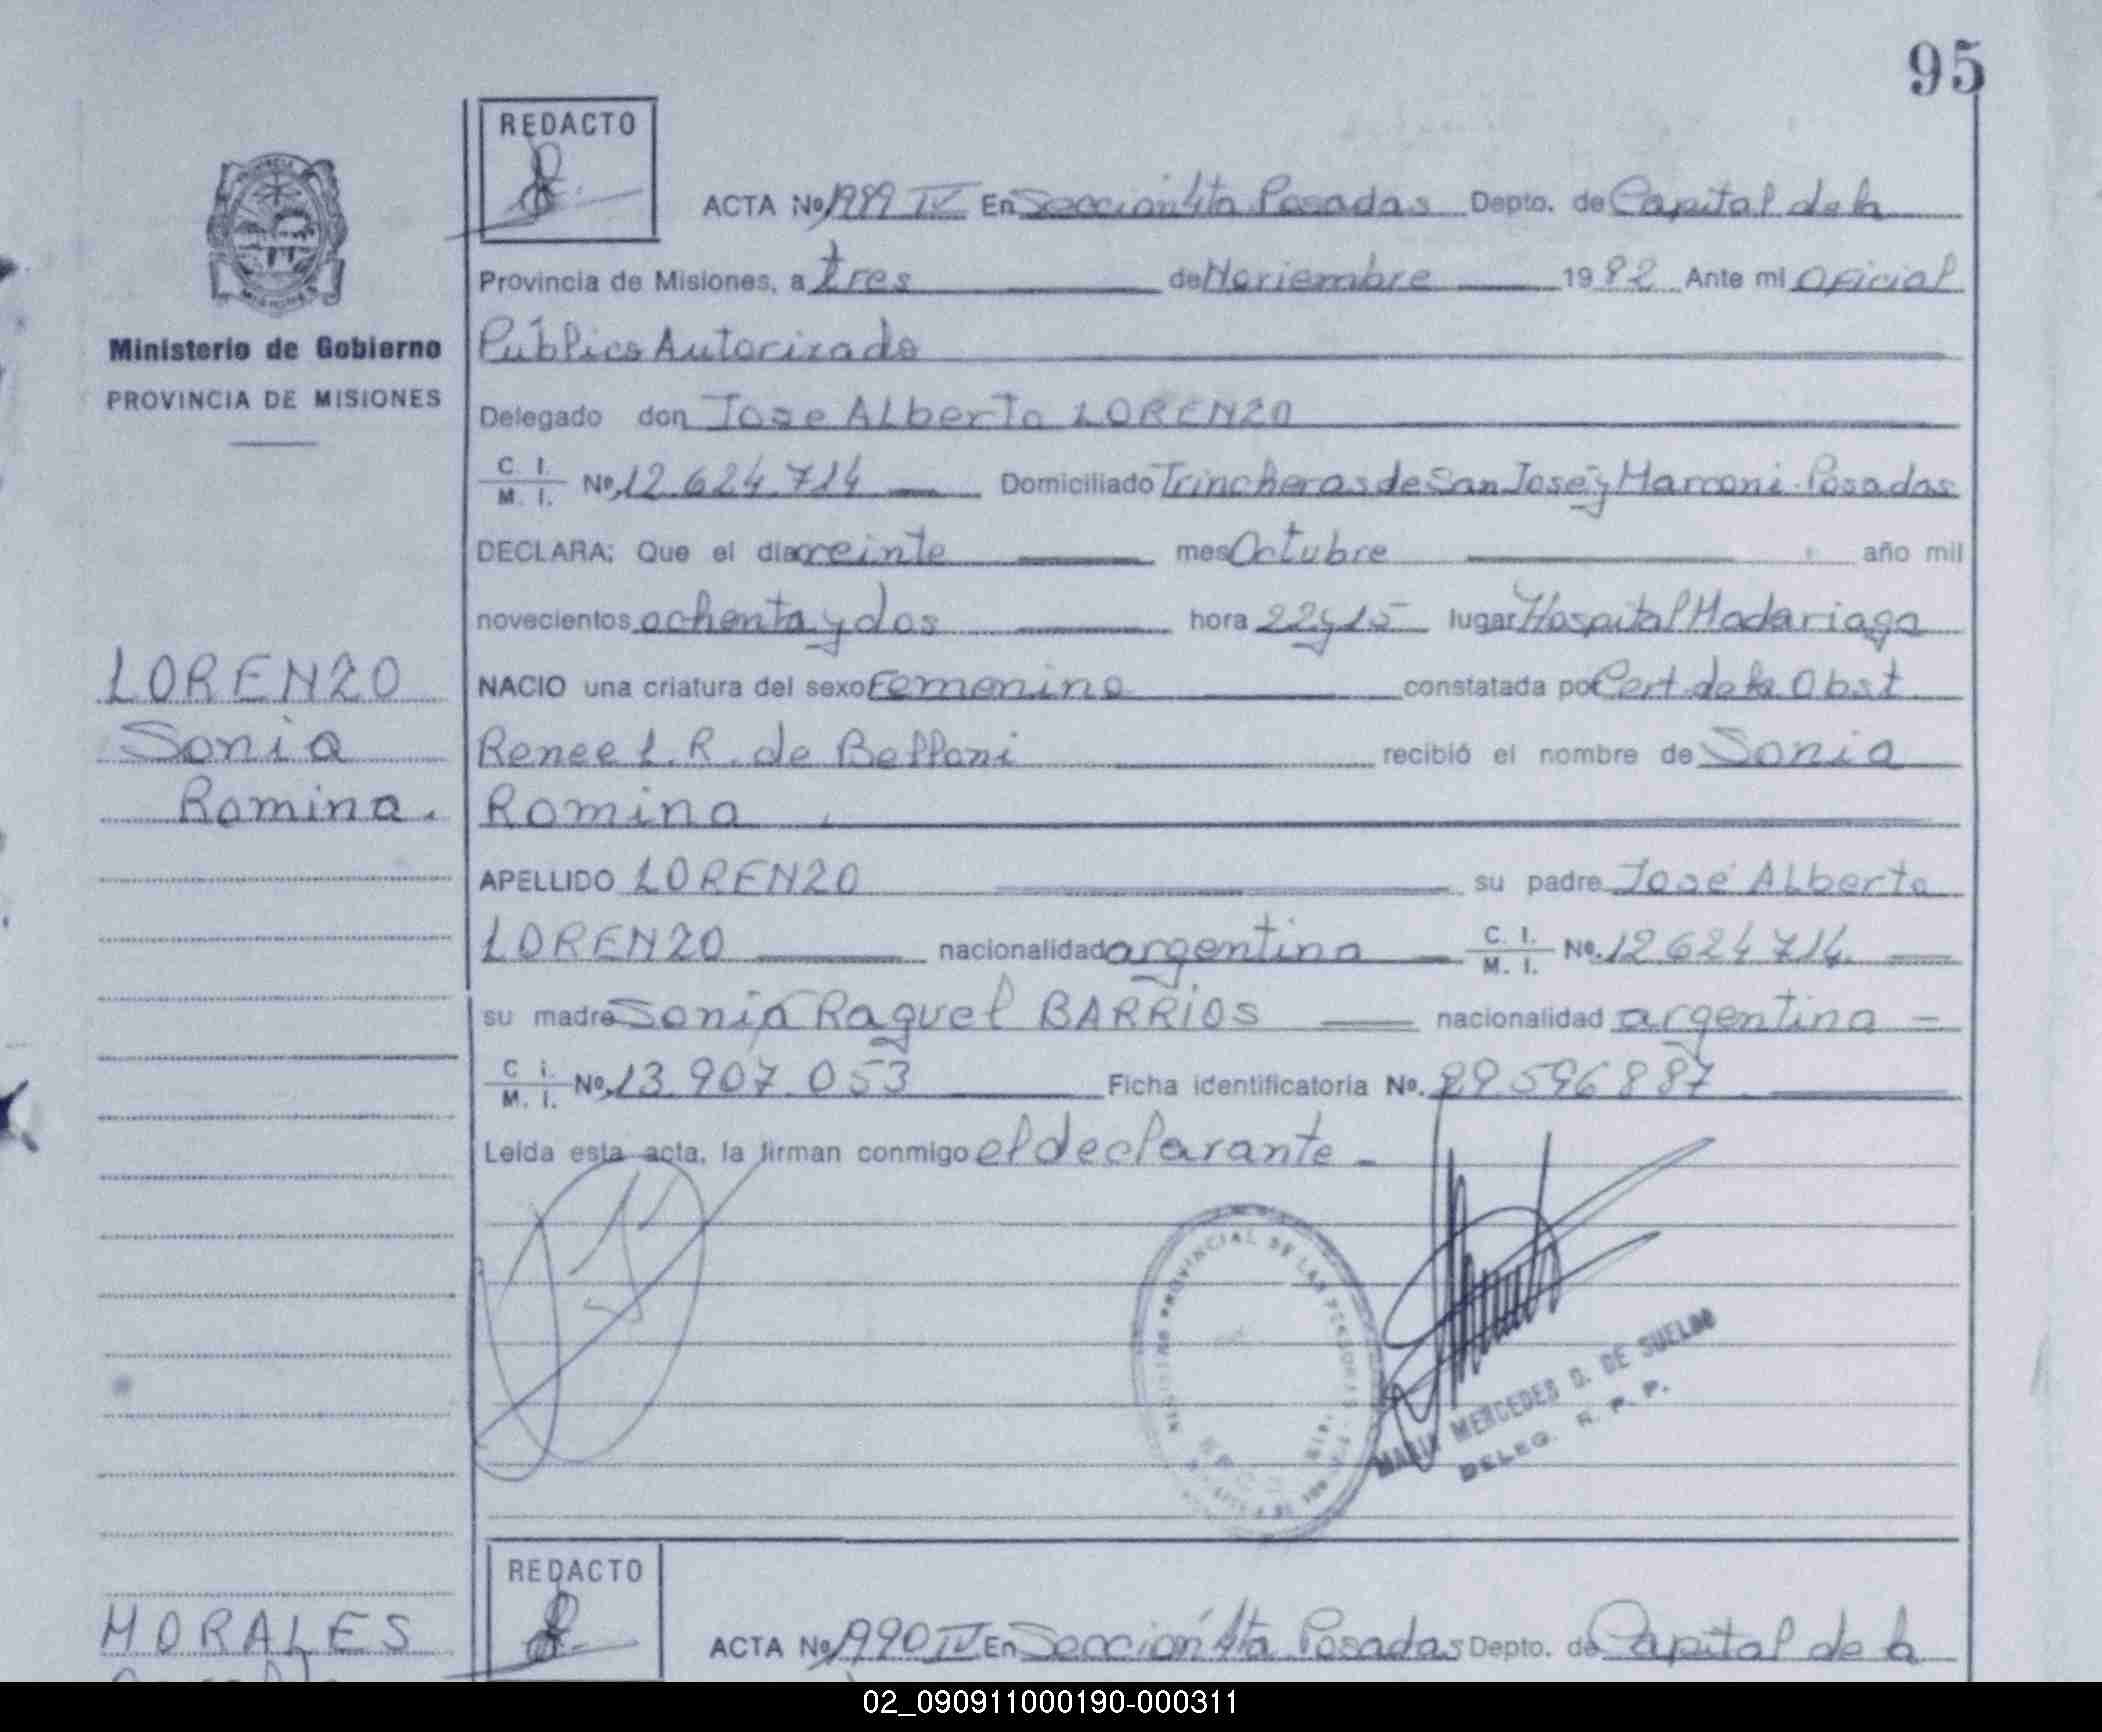 95
REDACTO
ACTA Nº 1989 IV En Sección 4ta Posadas Depto. de Capital de la
Provincia de Misiones, a tres de Noviembre 1982 Ante mi Oficial
Ministerio de Gobierno
Público Autorizado
PROVINCIA DE MISIONES
Delegado don Jose ALberto LORENZO
C. I. / M. I. Nº 12.624.714 Domiciliado Trincheras de San José y Marconi - Posadas
DECLARA; Que el dia veinte mes Octubre año mil
novecientos ochenta y dos hora 22 y 15 lugar Hospital Madariaga
LORENZO
NACIO una criatura del sexo Femenino constatada por Cert. de la Obst
Sonia
Renee L. R. de Belloni recibió el nombre de Sonia
Romina.
Romina
APELLIDO LORENZO su padre José ALberto
LORENZO nacionalidad argentina C. I. / M. I. Nº. 12 624 714
su madre Sonia Raquel BARRIOS nacionalidad argentina -
C. I. / M. I. Nº. 13.907.053 Ficha identificatoria Nº. 29.596.887
Leida esta acta, la firman conmigo el declarante -
PROVINCIAL DE LAS PERSONAS
MARIA MERCEDES G. DE SUELDO
DELEG. R. P. P.
REDACTO
MORALES
ACTA Nº 1990 IV En Sección 4ta Posadas Depto. de Capital de la
02_090911000190-000311